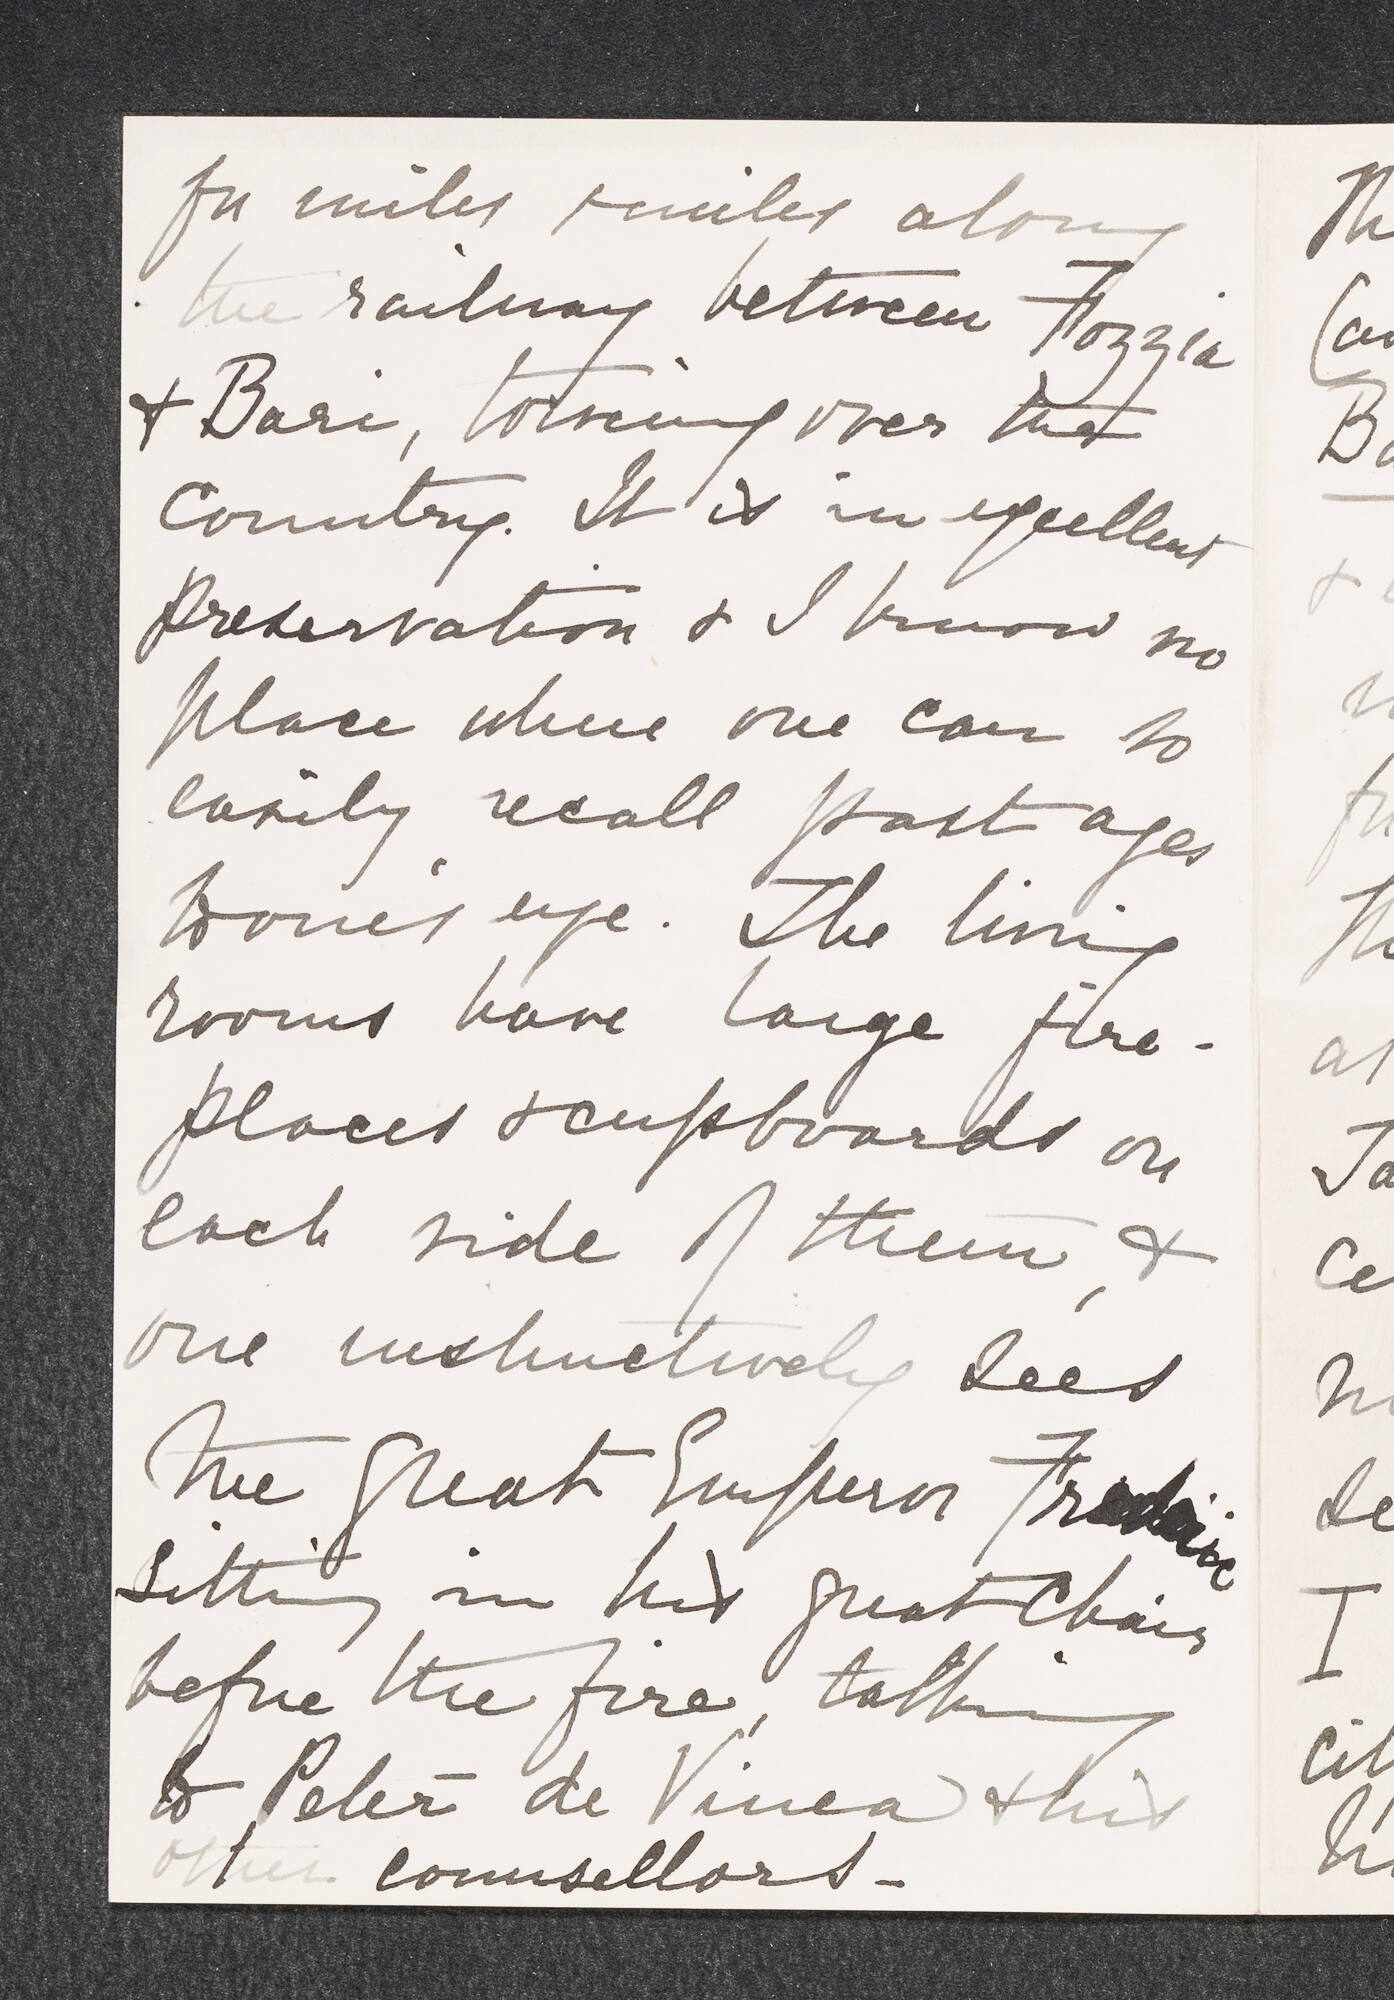 for miles & miles along
the railway between Fozzia
& Bari, towering over the
country. It is in excellent
preservation & I know no
place where one can so
easily recall past ages
to one's eye. The living
rooms have large fire-
places & cupboards on
each side of them, &
one instinctively sees
the great Emperor Frederic
sitting in his great chair
before the fire, talking
to Peter de Vinea & his
other counsellors -
Th
(an
Ba
&
fu
Th
at
Ja
Ce
se
I
cit